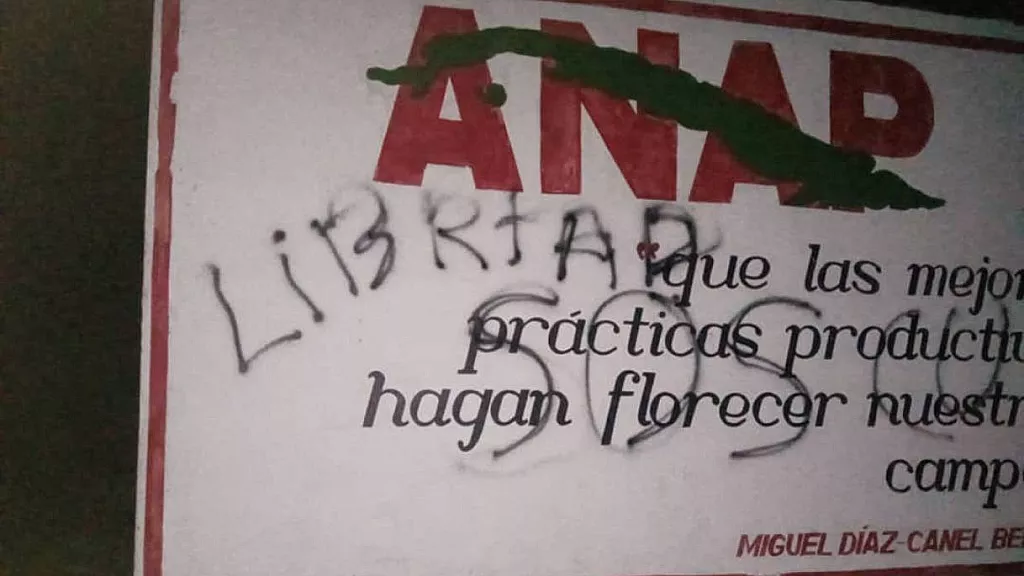 ANAP
LiBRtAD
"que las mejor
prácticas productiv
SOS CU
hagan florecer nuestr
camp
MIGUEL DÍAZ-CANEL BE